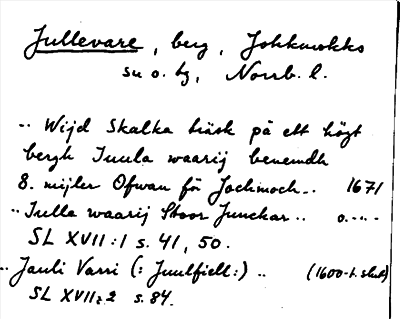 Jullevare, berg, Jokkmokks
sn o. tg, Norrb. l.
.. Wijd Skalka träsk på ett högt
bergh Iuula waarij benemdh
8. mijler Ofwan för Jochmoch.. 1671
.. Iulla waarij Stoor Junckar.. o.-.-
SL XVII:1 s. 41, 50.
.. Jauli Varri (: Juulfiell:) .. (1600-t. slut)
SL XVII:2 s. 84.